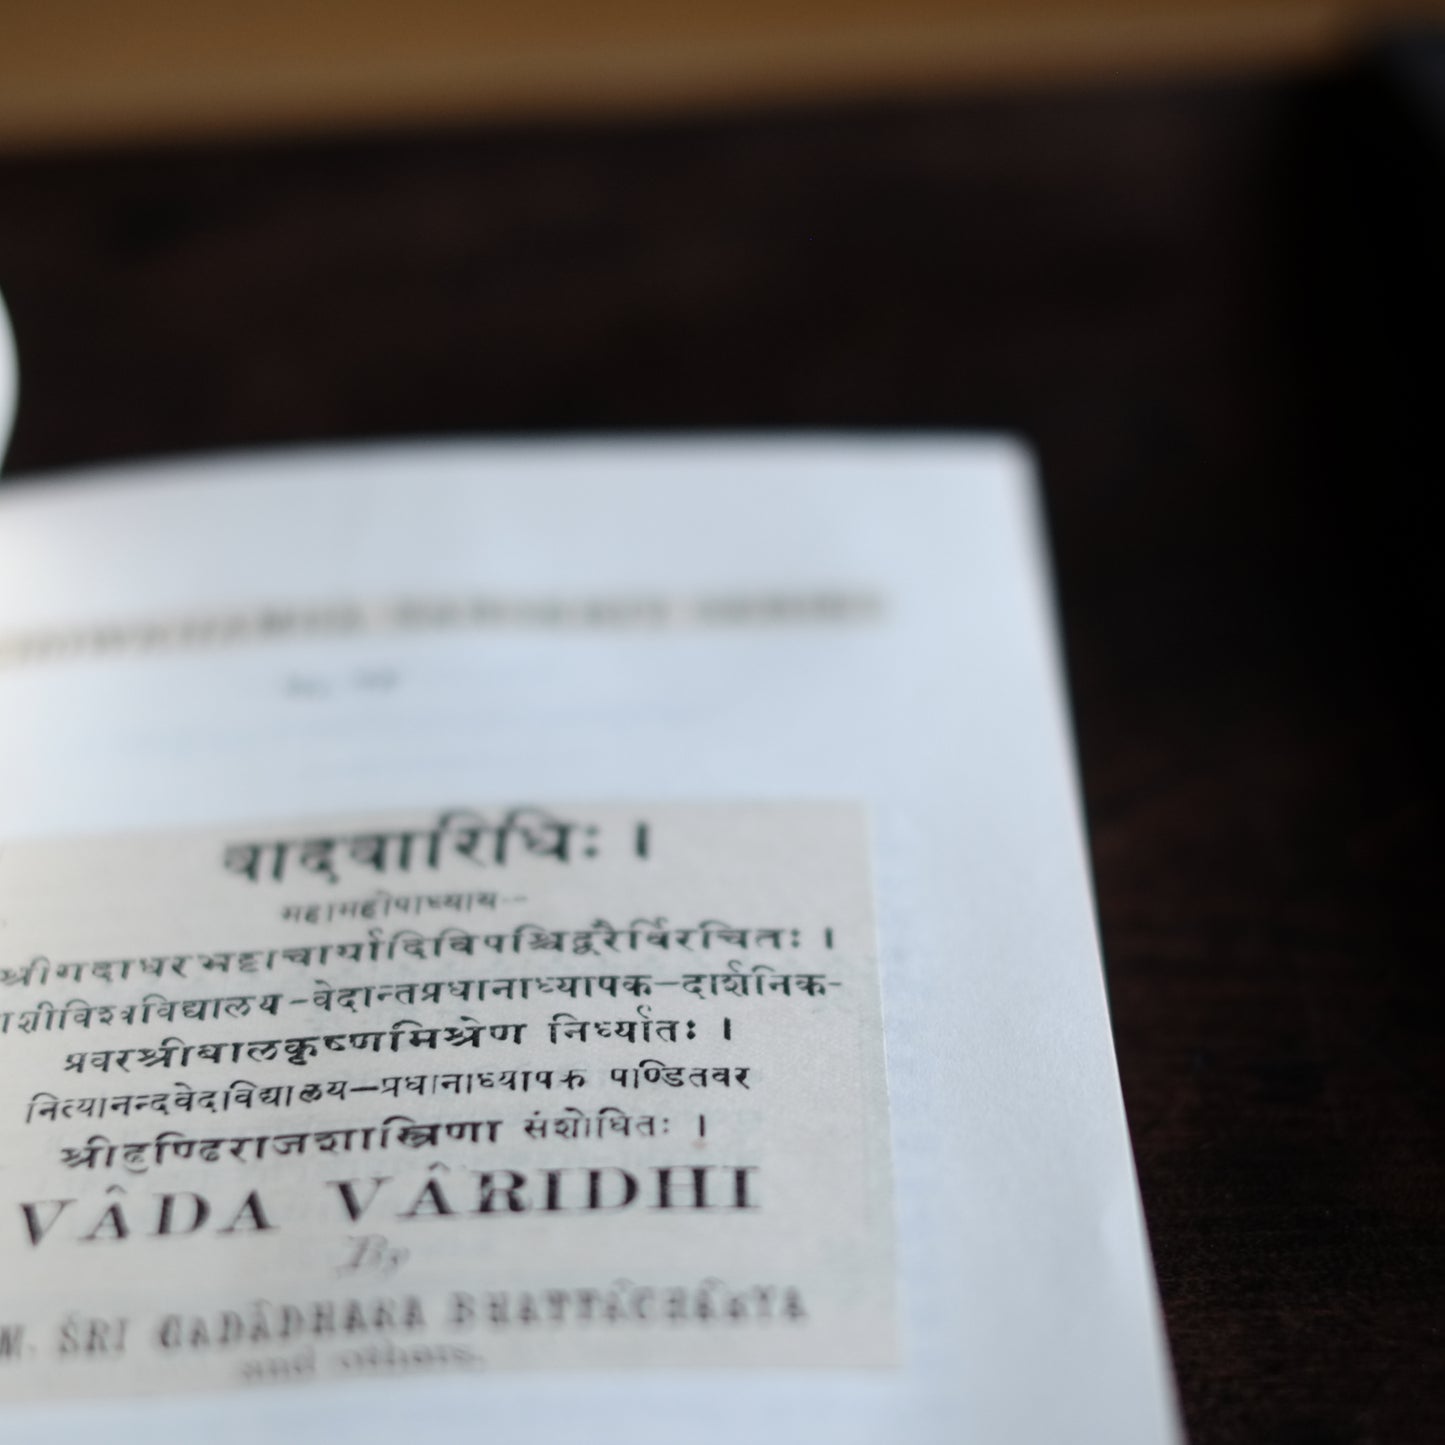 वादवारिधिः ।
महामहोपाध्याय--
श्रीगदाधरभट्टाचार्यादिविपश्चिद्वरैर्विरचितः ।
वेदान्तप्रधानाध्यापक-दार्शनिक-
प्रवरश्रीबालकृष्णमिश्रेण निर्ध्यातः ।
नित्यानन्दवेदविद्यालय-प्रधानाध्यापक पाण्डितवर
श्रीढुण्ढिराजशास्त्रिणा संशोधितः ।
VÂDA VÂRIDHI
By
M. ŚRI GADÂDHARA BHATTÂCHÂRYA
and others.